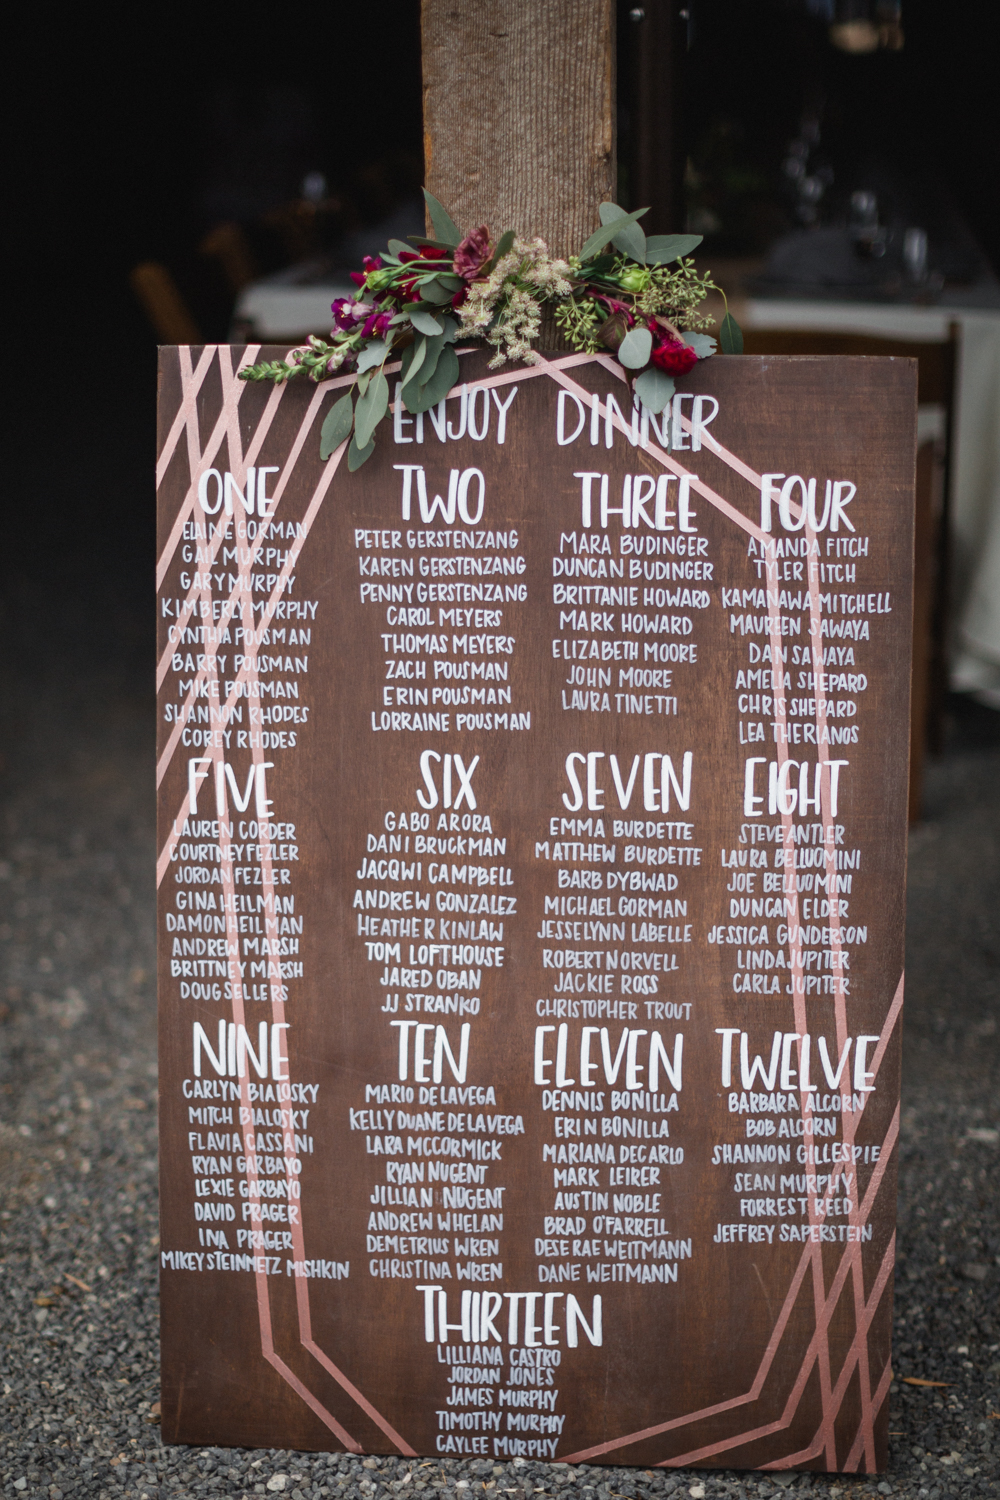 ENJOY DINNER
ONE
ELAINE GORMAN
GAIL MURPHY
GARY MURPHY
KIMBERLY MURPHY
CYNTHIA POUSMAN
BARRY POUSMAN
MIKE POUSMAN
SHANNON RHODES
COREY RHODES
TWO
PETER GERSTENZANG
KAREN GERSTENZANG
PENNY GERSTENZANG
CAROL MEYERS
THOMAS MEYERS
ZACH POUSMAN
ERIN POUSMAN
LORRAINE POUSMAN
THREE
MARA BUDINGER
DUNCAN BUDINGER
BRITTANIE HOWARD
MARK HOWARD
ELIZABETH MOORE
JOHN MOORE
LAURA TINETTI
FOUR
AMANDA FITCH
TYLER FITCH
KAMANAWA MITCHELL
MAUREEN SAWAYA
DAN SAWAYA
AMELIA SHEPARD
CHRIS SHEPARD
LEA THERIANOS
FIVE
LAUREN CORDER
COURTNEY FEZLER
JORDAN FEZLER
GINA HEILMAN
DAMON HEILMAN
ANDREW MARSH
BRITTNEY MARSH
DOUG SELLERS
SIX
GABO ARORA
DANI BRUCKMAN
JACQWI CAMPBELL
ANDREW GONZALEZ
HEATHER KINLAW
TOM LOFTHOUSE
JARED OBAN
JJ STRANKO
SEVEN
EMMA BURDETTE
MATTHEW BURDETTE
BARB DYBWAD
MICHAEL GORMAN
JESSELYNN LABELLE
ROBERT NORVELL
JACKIE ROSS
CHRISTOPHER TROUT
EIGHT
STEVE ANTLER
LAURA BELLUOMINI
JOE BELLUOMINI
DUNCAN ELDER
JESSICA GUNDERSON
LINDA JUPITER
CARLA JUPITER
NINE
CARLYN BIALOSKY
MITCH BIALOSKY
FLAVIA CASSANI
RYAN GARBAYO
LEXIE GARBAYO
DAVID PRAGER
INA PRAGER
MIKEY STEINMETZ MISHKIN
TEN
MARIO DE LA VEGA
KELLY DUANE DE LA VEGA
LARA MCCORMICK
RYAN NUGENT
JILLIAN NUGENT
ANDREW WHELAN
DEMETRIUS WREN
CHRISTINA WREN
ELEVEN
DENNIS BONILLA
ERIN BONILLA
MARIANA DECARLO
MARK LEIRER
AUSTIN NOBLE
BRAD O'FARRELL
DESERAE WEITMANN
DANE WEITMANN
TWELVE
BARBARA ALCORN
BOB ALCORN
SHANNON GILLESPIE
SEAN MURPHY
FORREST REED
JEFFREY SAPERSTEIN
THIRTEEN
LILLIANA CASTRO
JORDAN JONES
JAMES MURPHY
TIMOTHY MURPHY
CAYLEE MURPHY